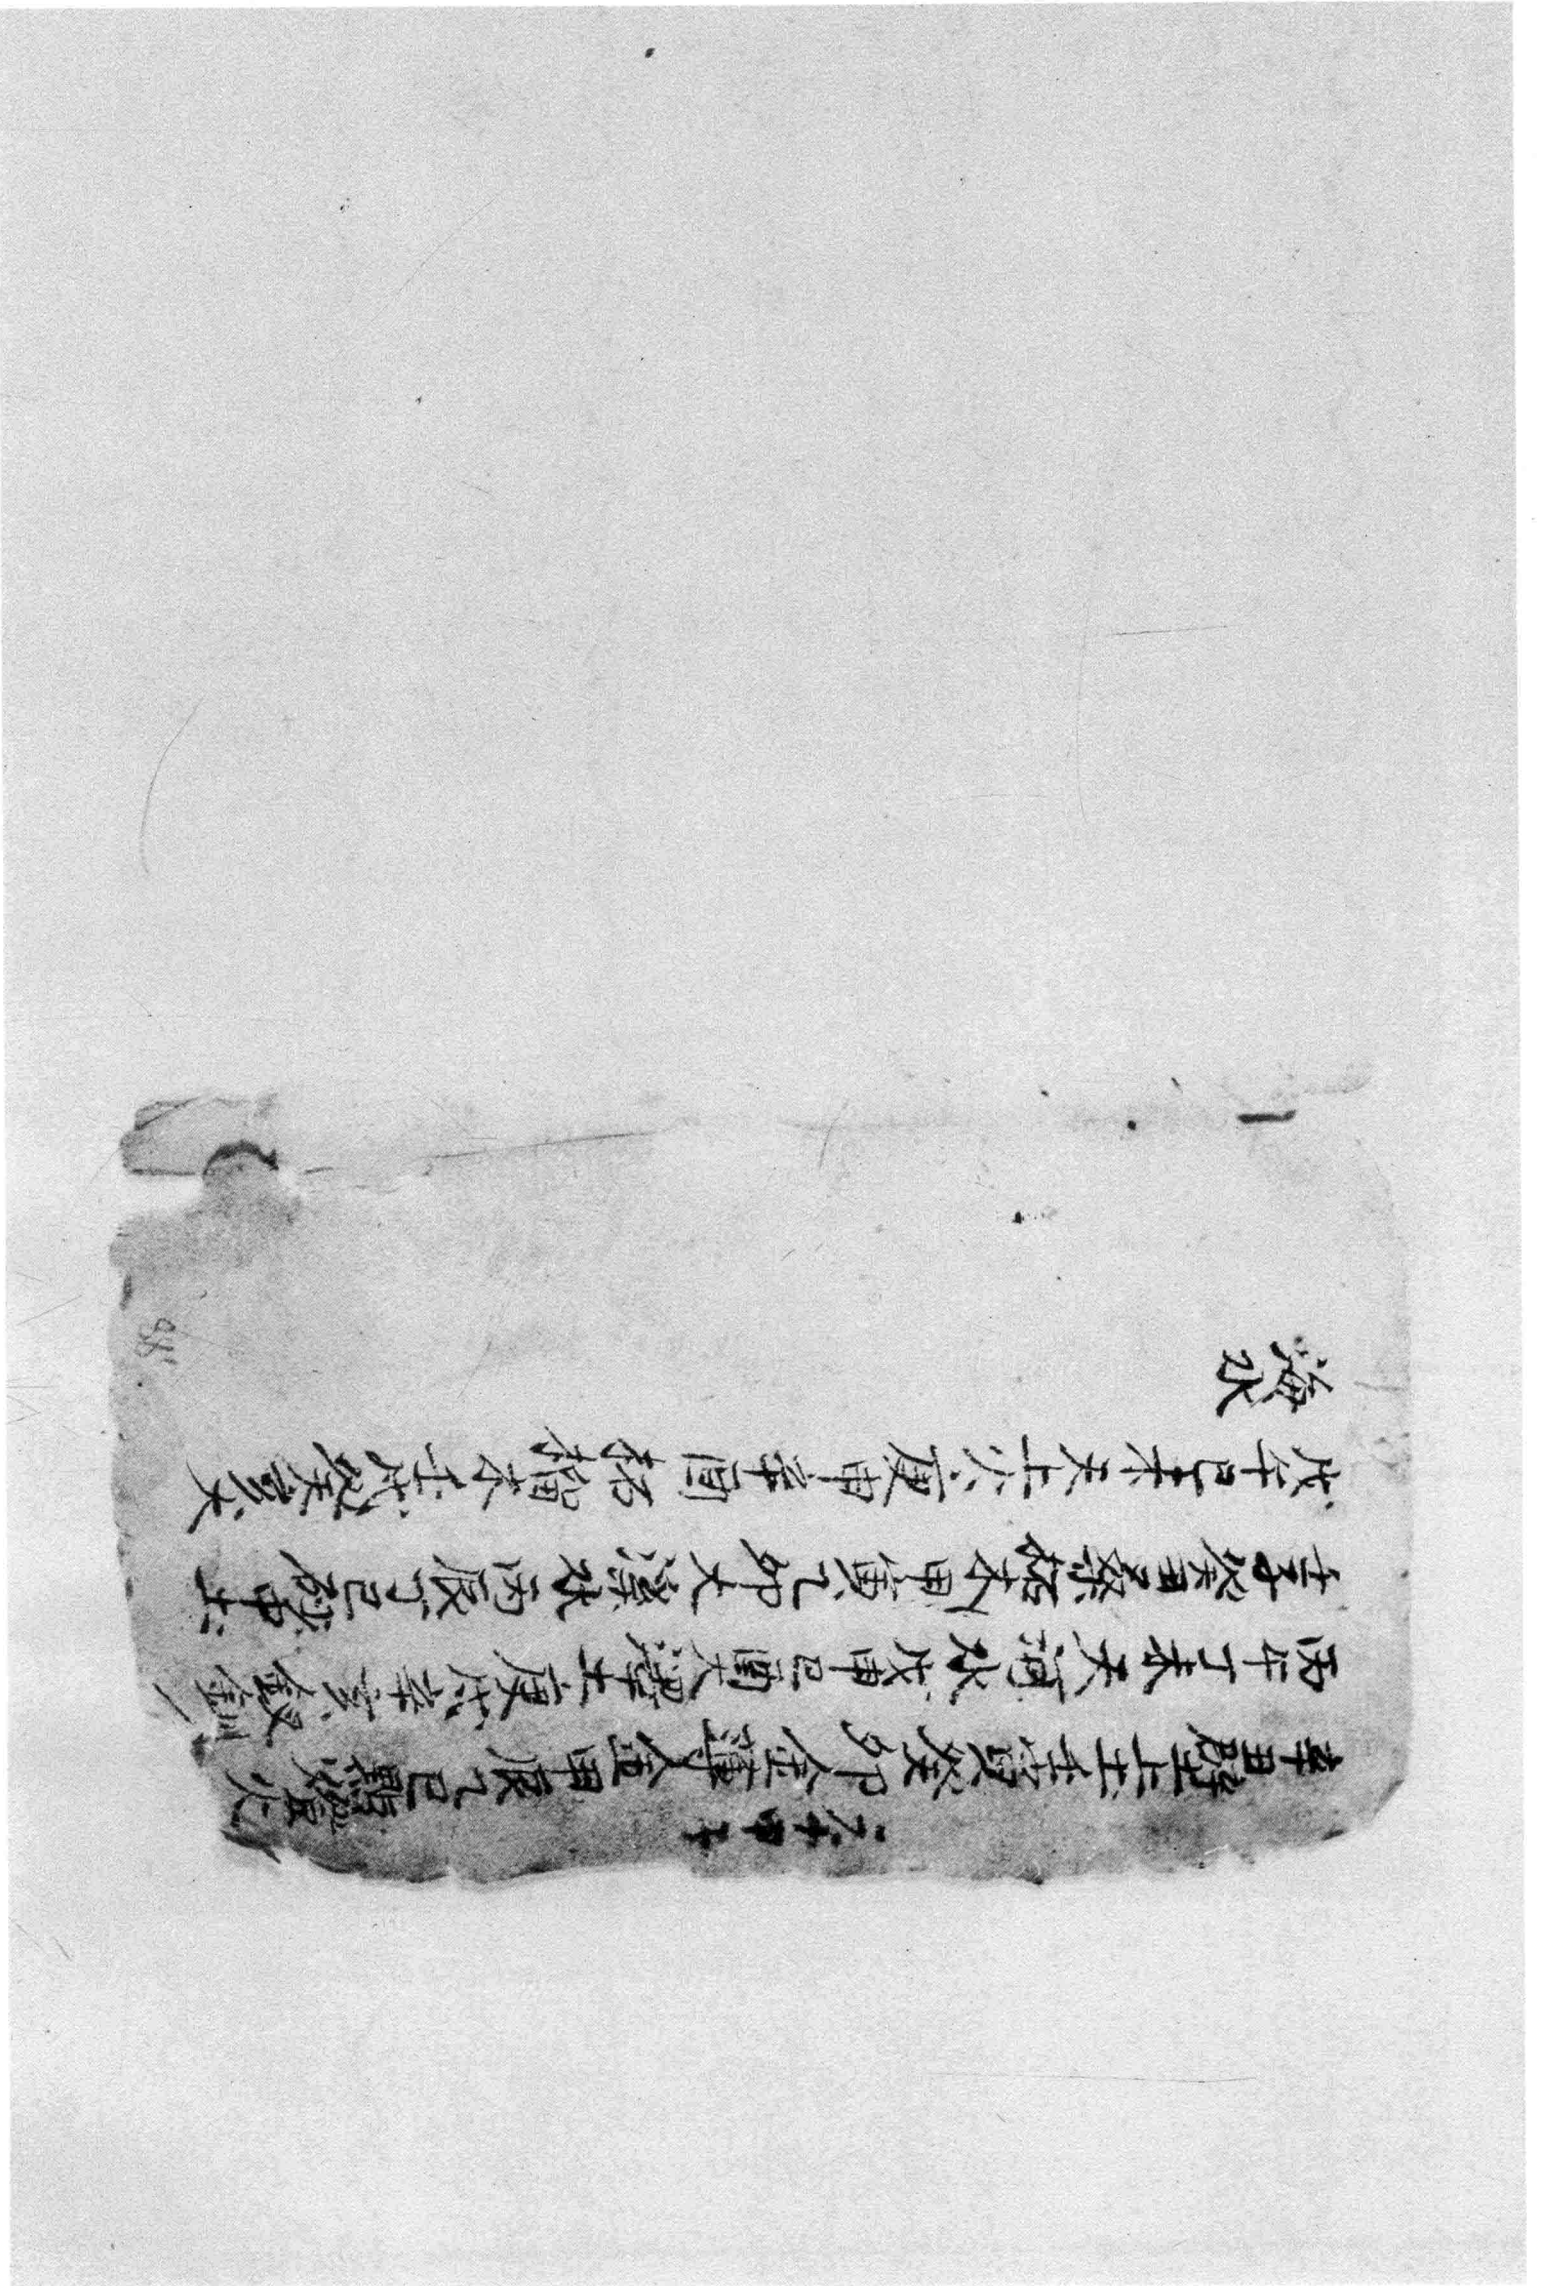 六十甲子
辛丑壁上土壬寅癸卯金薄金甲辰乙巳覆燈火
丙午丁未天河水戊申己酉大驛土庚戌辛亥釵釧
壬子癸丑桑柘木甲寅乙卯大溪水丙辰丁巳沙中土
戊午己未天上火庚申辛酉石榴木壬戌癸亥大
海水